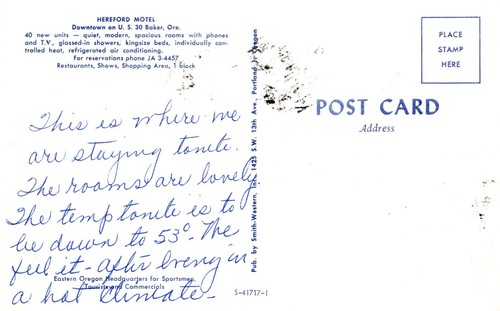 HEREFORD MOTEL
Downtown on U. S. 30 Baker, Ore.
40 new units — quiet, modern, spacious rooms with phones
and T.V., glassed-in showers, kingsize beds, individually con-
trolled heat, refrigerated air conditioning.
For reservations phone JA 3-4457
Restaurants, Shows, Shopping Area, 1 Block
This is where we
are staying tonite.
The rooms are lovely
The temp tonite is to
be down to 53° - We
feel it - after being in
a hot climate -
Eastern Oregon Headquarters for Sportsmen,
Tourists and Commercials
Pub. by Smith-Western, Inc. 1425 S.W. 13th Ave., Portland, Oregon
S-41717-1
POST CARD
Address
PLACE
STAMP
HERE